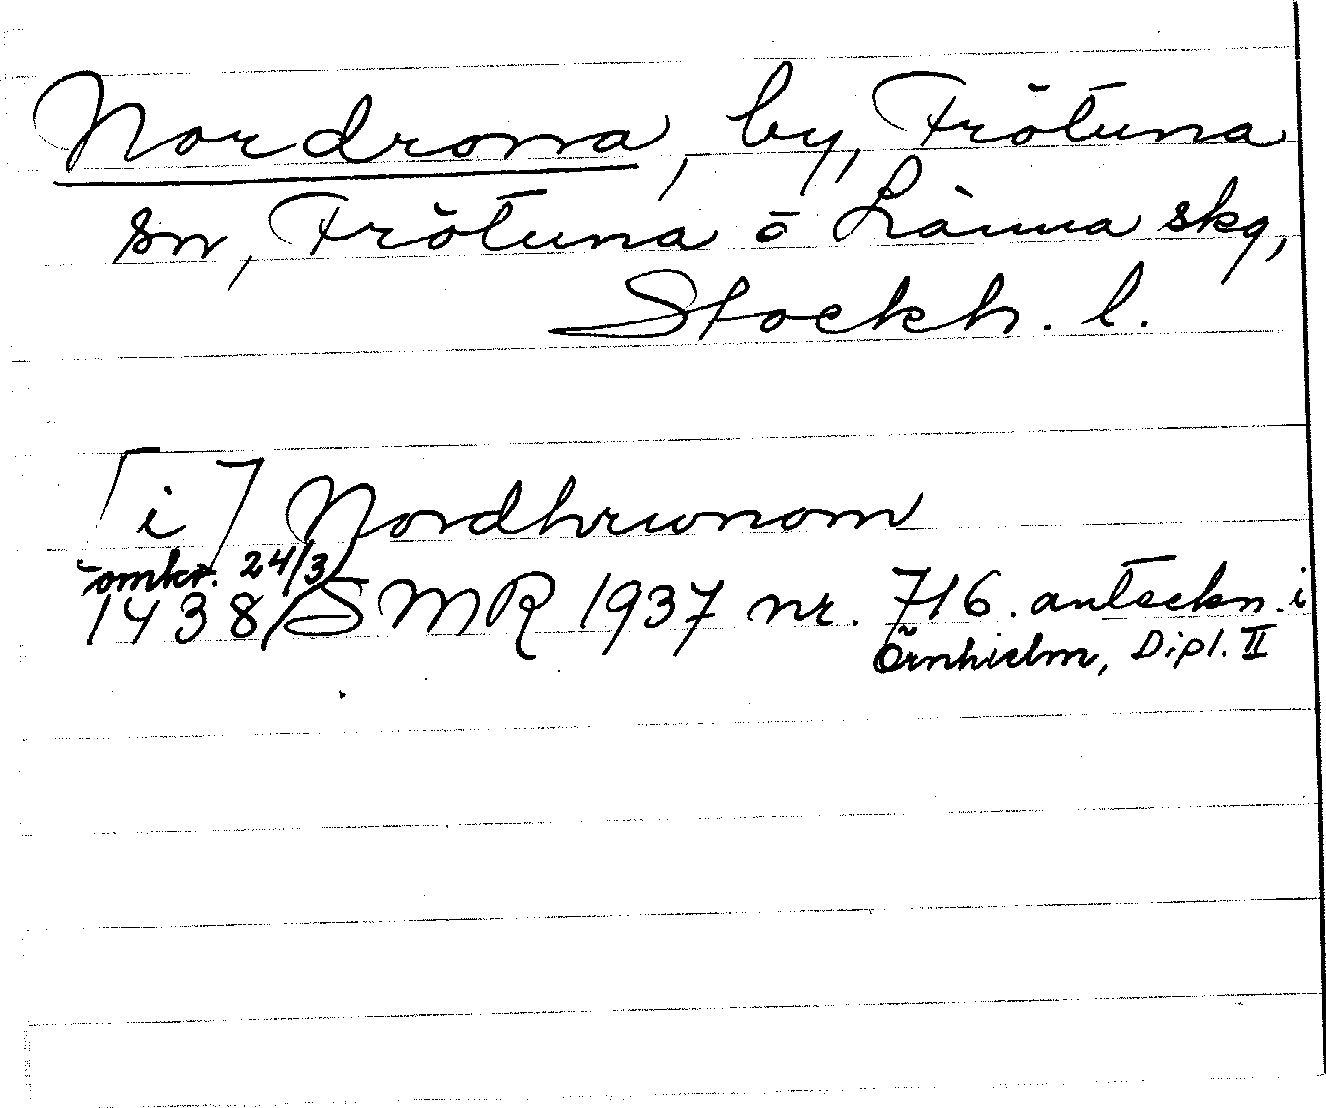 Nordrona, by, Frötuna
sn, Frötuna o Länna skg,
Stockh. l.
[i] Nordhrunom
omkr. 24/3
1438/SMR 1937 nr. 716. anteckn. i
Örnhielm, Dipl. II